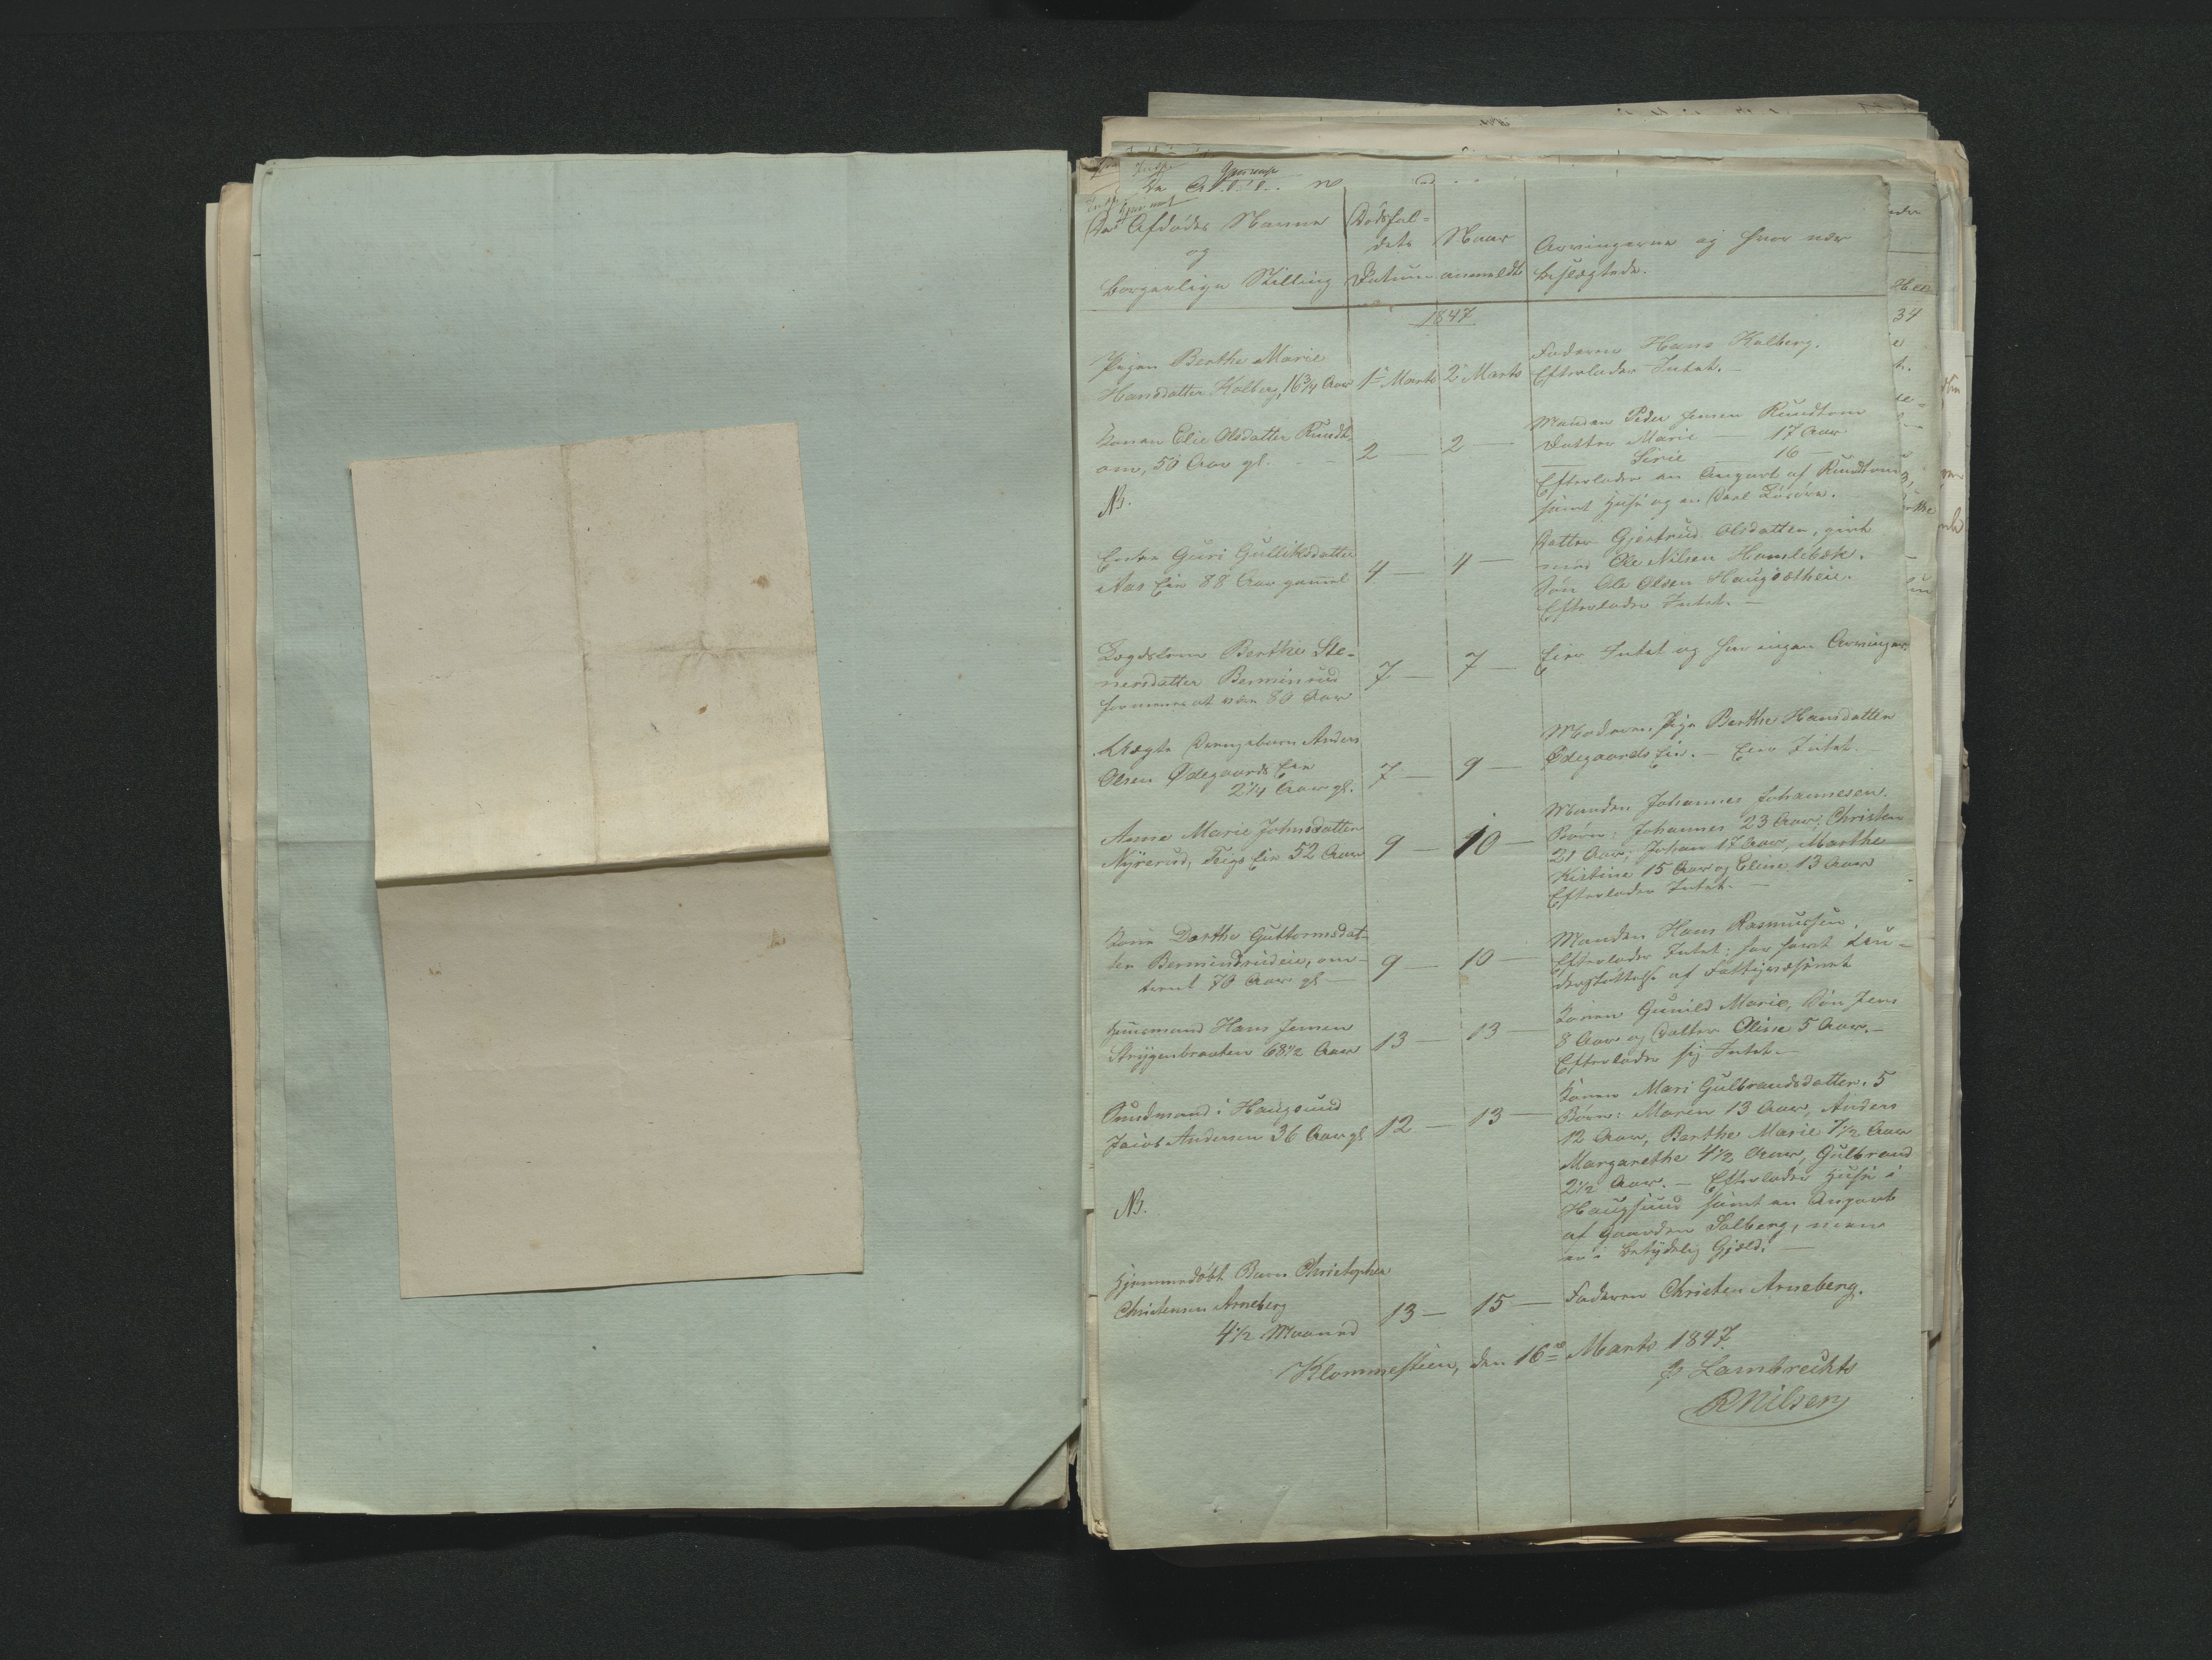 De Afdødes Navne
og
borgerlige Stilling
Dødsfal-
dets
Datum
Naar
anmeldt
Arvingerne og hvor nær
beslægtede.
1847
Pigen Berthe Marie
Hansdatter Kolberg, 16 3/4 Aar
1ste Marts
2den Marts
Faderen Hans Kolberg.
Efterlader Intet. —
Konen Elie Olsdatter Rundt-
om, 50 Aar gl.
2 —
2 —
Manden Peder Jensen Rundtom
Datter Marie — 17 Aar
— Sirie — 16 —
Efterlader en Anpart af Rundtom
samt Huse og en Deel Løsøre.
NB.
Enken Guri Gulliksdatter
Aas Eie 88 Aar gammel
4 —
4 —
Datter Gjertrud Olsdatter, givt
med Ole Nilsen Hamlebæk.
Søn Ole Olsen Haugsætheie.
Efterlader Intet. —
Lægdslem Berthe Ste-
nersdatter Berminrud
formenes at være 80 Aar
7 —
7 —
Eier Intet og har ingen Arvinger.
Uægte Drengebarn Anders
Olsen Ødegaards Eie
2 1/4 Aar gl.
7 —
9 —
Moderen, Pige Berthe Hansdatter
Ødegaards Eie. — Eier Intet.
Anne Marie Johnsdatter
Nyrerud, Teigs Eie 52 Aar
9 —
10 —
Manden Johannes Johannesen.
Børn: Johannes 23 Aar, Christen
21 Aar, Johan 17 Aar, Marthe
Kistine 15 Aar og Eline 13 Aar
Efterlader Intet. —
Kone Dorthe Guttormsdat-
ter Berminrudeie, om-
trent 70 Aar gl —
9 —
10 —
Manden Hans Rasmussen.
Efterlader Intet; har havt Un-
derstøttelse af Fattigvæsenet
Huusmand Hans Jensen
Strygenbraaten 68 1/2 Aar
13 —
13 —
Konen Gunild Marie, Søn Jens
8 Aar og Datter Oline 5 Aar. —
Efterlader sig Intet. —
Sundmand i Haugsund
Jacob Andersen 36 Aar gl
12 —
13 —
Konen Mari Gulbrandsdatter. 5
Børn: Maren 13 Aar, Anders
12 Aar, Berthe Marie 7 1/2 Aar
Margarethe 4 1/2 Aar, Gulbrand
2 1/2 Aar. — Efterlader Huse i
Haugsund samt en Anpart
af Gaarden Solberg, men
er i betydelig Gjæld. —
NB.
Hjemmedøbt Barn Christopher
Christensen Arneberg
4 1/2 Maaned
13 —
15 —
Faderen Christen Arneberg.
Klommesteen, den 16de Marts 1847.
p Lambrechts
R Nilsen